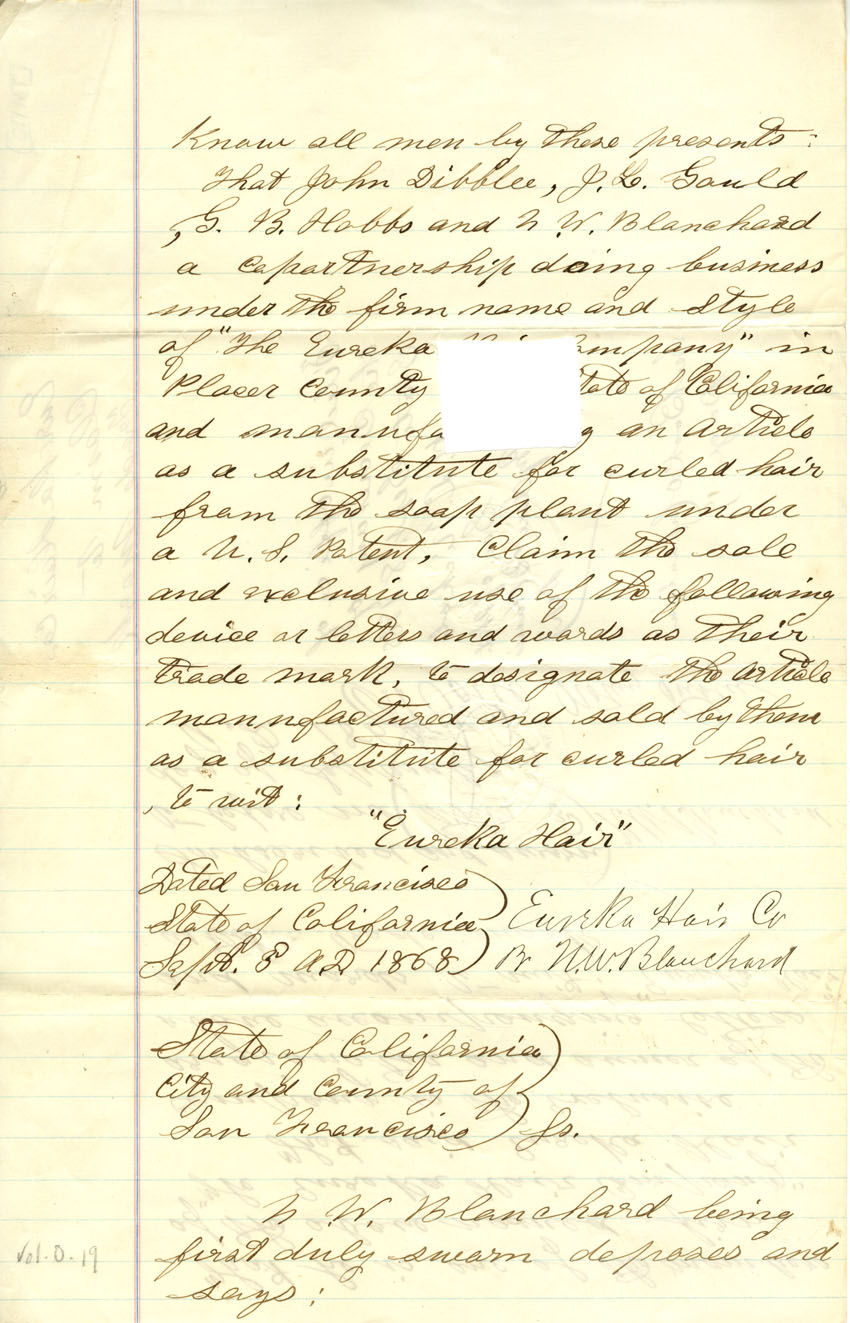 Know all men by these presents:
That John Dibblee, J. L. Gould
, G. B. Hobbs and N. W. Blanchard
a copartnership doing business
under the firm name and style
of "The Eureka ompany" in
Placer County tate of California
and manufa g an article
as a substitute for curled hair
from the soap plant under
a U. S. Patent, Claim the sole
and exclusive use of the following
device or letters and words as their
trade mark, to designate the article
mannfactured and sold by them
as a substitute for curled hair
, to wit:
"Eureka Hair"
Dated San Francisco
State of California
Sept. 8 A D 1868
Eureka Hair Co
Br N. W. Blanchard
State of California
City and County of
San Francisco Ss.
N. W. Blanchard being
first duly sworn deposes and
says:
Vol. 0. 19